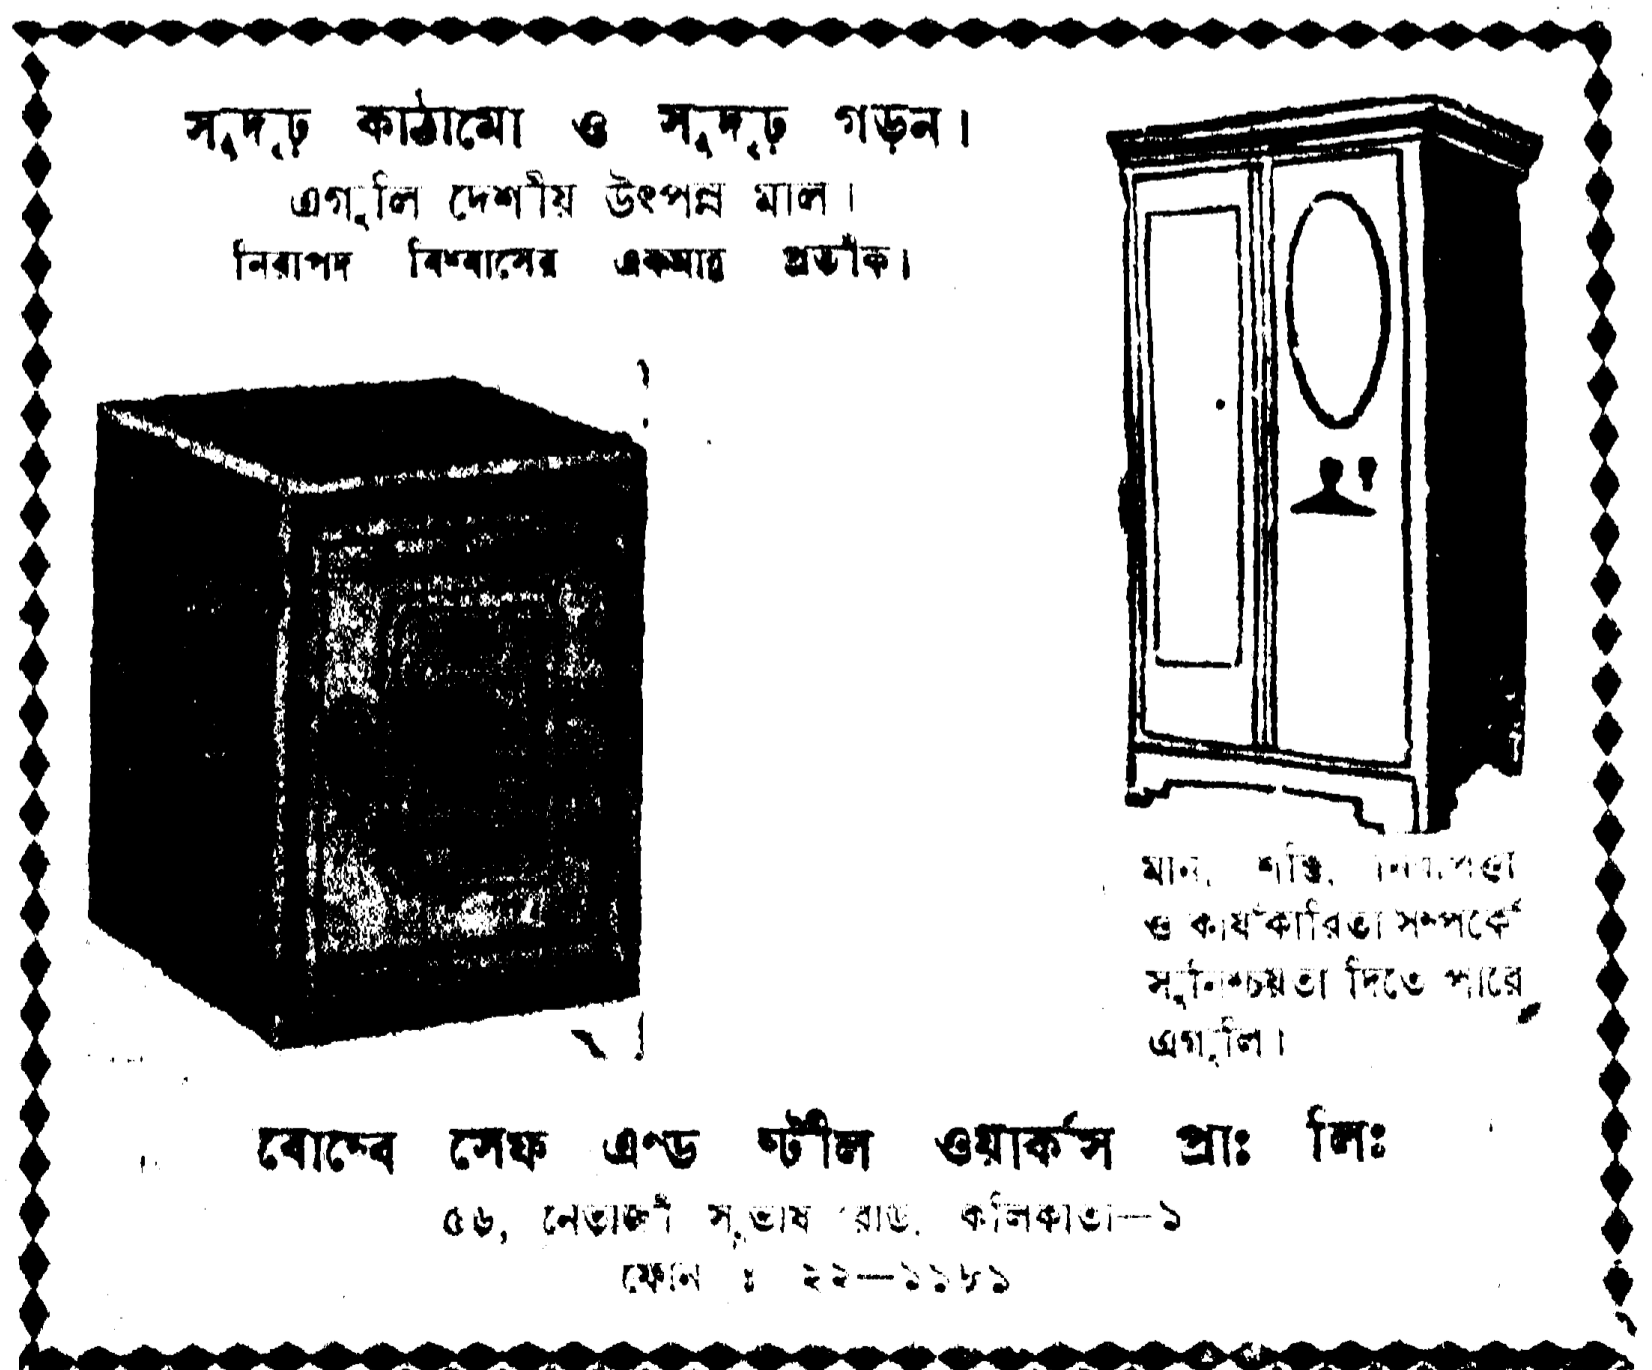 সুদৃঢ় কাঠামো ও সুদৃঢ় গড়ন।
এগুলি দেশীয় উৎপন্ন মাল।
নিরাপদ বিশ্বাসের একমাত্র প্রতীক।
মান, শক্তি, নিরাপত্তা
ও কার্যকারিতা সম্পর্কে
সুনিশ্চয়তা দিতে পারে
এগুলি।
বোম্বে সেফ এণ্ড ষ্টীল ওয়ার্কস প্রাঃ লিঃ
৫৬, নেতাজী সুভাষ রোড, কলিকাতা—১
ফোন : ২২—১১৮১